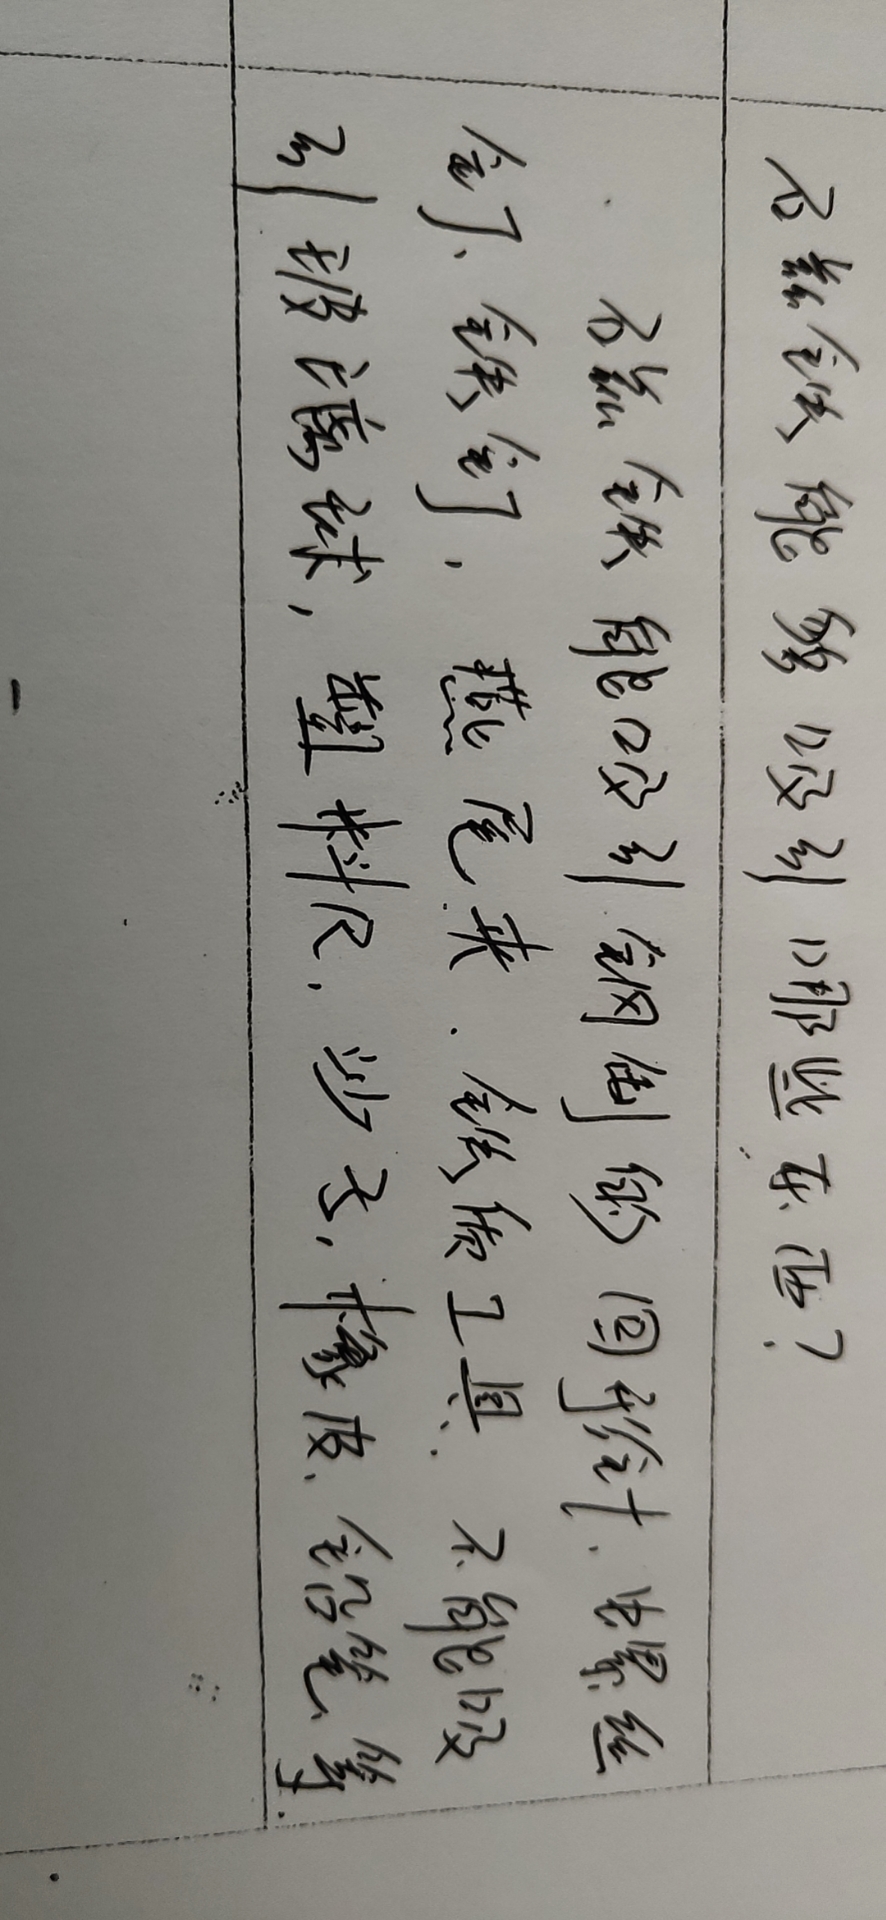 磁铁能够吸引哪些东西?
磁铁能吸引钢制的回形针、螺丝
钉、铁钉、燕尾夹、铁质工具、不能吸
引玻璃球,塑料尺、沙子,橡皮、铅笔等.